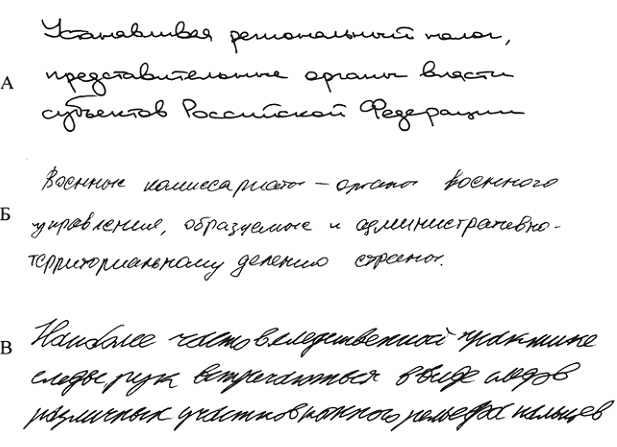 Устанавливая региональный налог,
А
представительные органы власти
субъектов Российской Федерации
Военные комиссариаты – органы военного
Б
управления, образуемые и административно-
территориальному делению страны.
Наиболее часто в следственной практике
В
следы рук встречаются в виде следов
различных участков кожного рельефа пальцев